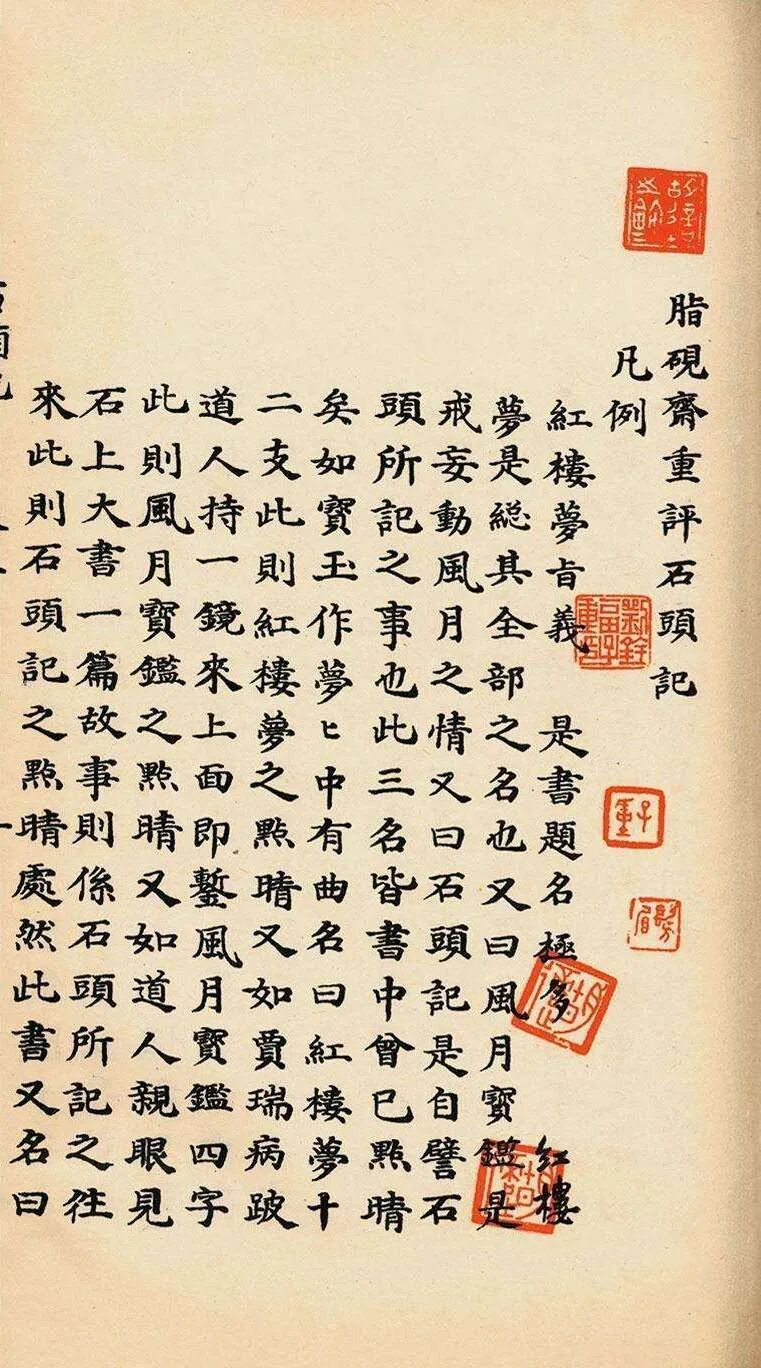 脂硯齋重評石頭記
凡例
紅樓夢旨義 是書題名極多 紅樓
夢是緫其全部之名也又曰風月寳鑑是
戒妄動風月之情又曰石頭記是自譬石
頭所記之事也此三名皆書中曾已點晴
矣如寳玉作夢〻中有曲名曰紅樓夢十
二支此則紅樓夢之點晴又如賈瑞病跛
道人持一鏡來上面即鏨風月寳鑑四字
此則風月寳鑑之點晴又如道人親眼見
石上大書一篇故事則係石頭所記之往
來此則石頭記之點晴處然此書又名曰
劉銓福子重印
子重